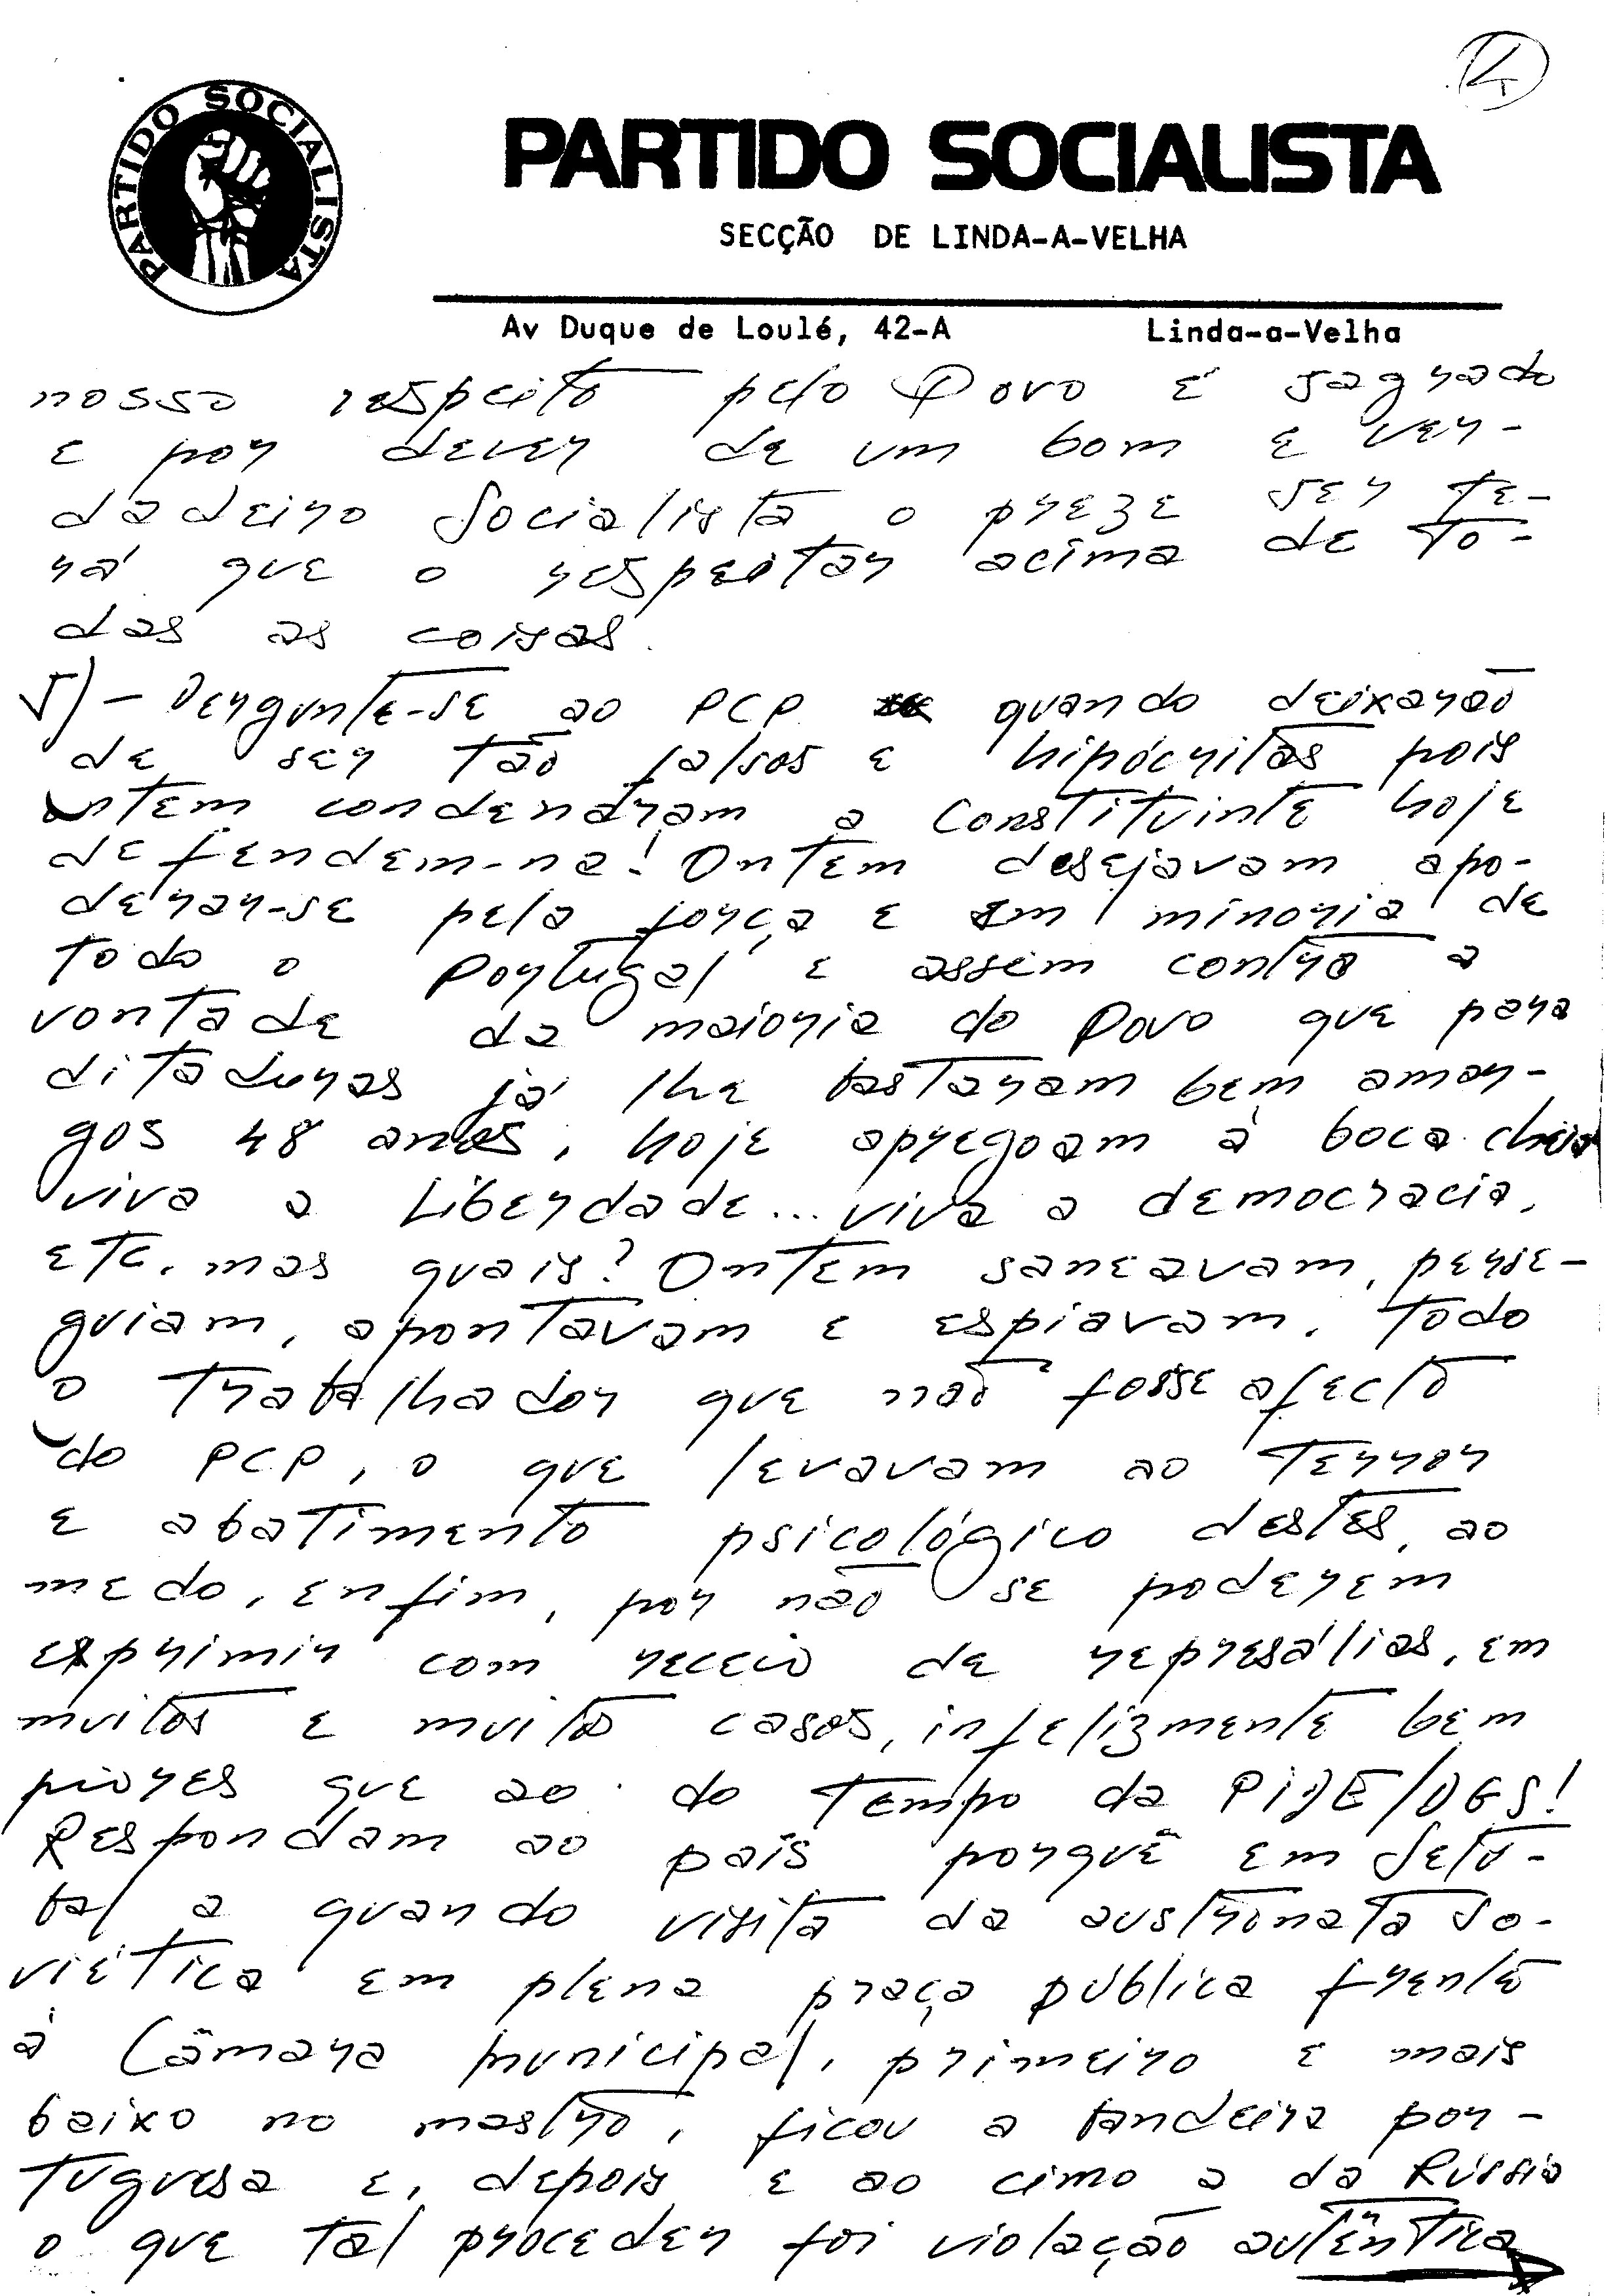 4
PARTIDO SOCIALISTA
PARTIDO SOCIALISTA
SECÇÃO DE LINDA-A-VELHA
Av Duque de Loulé, 42-A Linda-a-Velha
nosso respeito pelo Povo é sagrado
e por dever de um bom e ver-
dadeiro Socialista o preze ser te-
rá que o respeitar acima de to-
das as coisas.
5) - Pergunte-se ao PCP quando deixarão
de ser tão falsos e hipócritas pois
ontem condenaram a Constituinte hoje
defendem-na! Ontem desejavam apo-
derar-se pela força e em minoria de
todo o Portugal e assim contra a
vontade da maioria do Povo que para
ditaduras já lhe bastaram bem amar-
gos 48 anos, hoje apregoam à boca cheia
viva a Liberdade... viva a democracia,
etc. mas quais? Ontem saneavam, perse-
guiam, apontavam e espiavam, todo
o trabalhador que não fosse afecto
do PCP, o que levavam ao terror
e abatimento psicológico destes, ao
medo, enfim, por não se poderem
exprimir com receio de represálias, em
muitos e muitos casos, infelizmente bem
piores que ao do tempo da PIDE/DGS!
Respondam ao país porquê em Setú-
bal a quando visita da austronata so-
viética em plena praça pública frente
à Câmara Municipal, primeiro e mais
baixo no mastro, ficou a bandeira por-
tuguesa e, depois e ao cimo a da Rússia
o que tal proceder foi violação autêntica